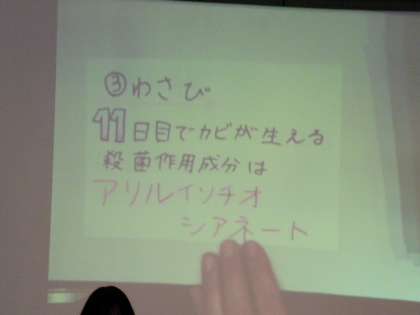 ③わさび
11日目でカビが生える
殺菌作用成分は
アリルイソチオ
シアネート